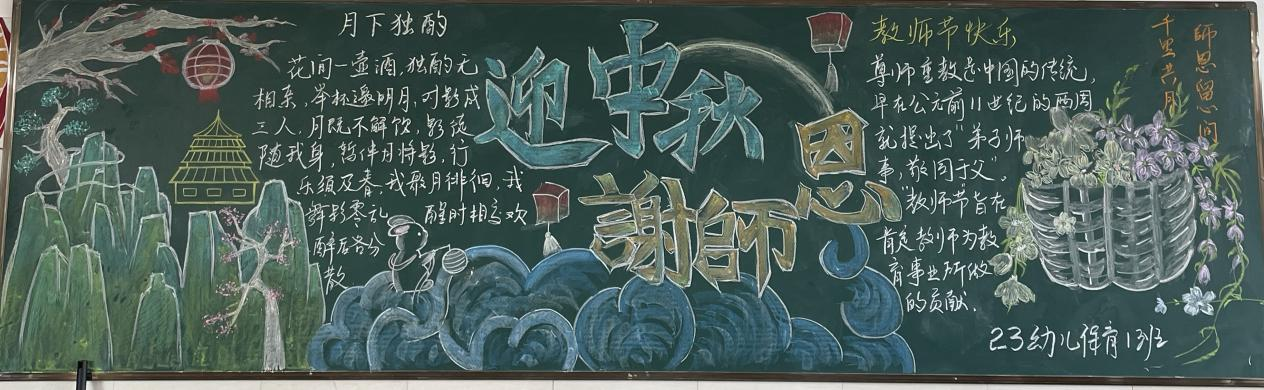 月下独酌
花间一壶酒,独酌无
相亲,举杯邀明月,对影成
三人,月既不解饮,影徒
随我身,暂伴月将影,行
乐须及春,我歌月徘徊,我
舞影零乱 醒时相交欢
醉后各分
散
迎中秋
謝師恩
教师节快乐
尊师重教是中国的传统,
早在公元前11世纪的西周
就提出了“弟子师
事,敬同于父”。
“教师节旨在
肯定教师为教
育事业所做
的贡献.
千里共月
師恩留心间
23幼儿保育1班